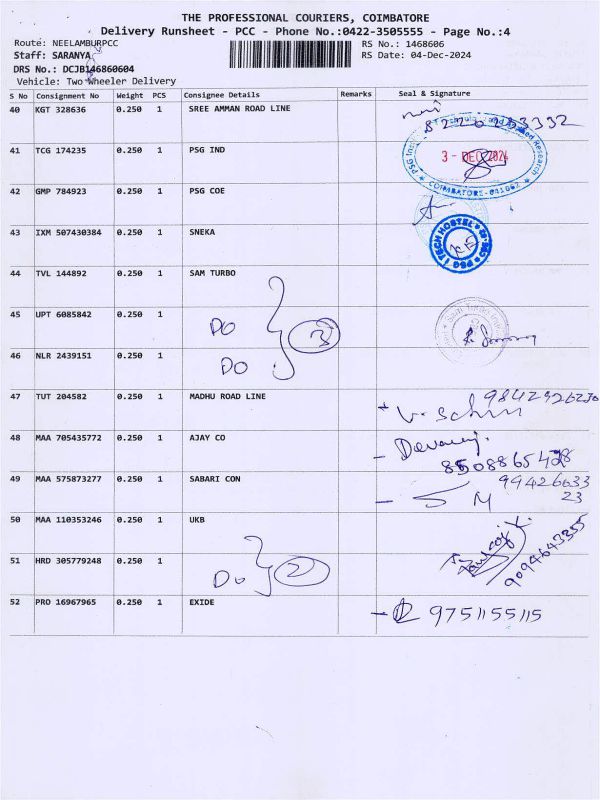 THE PROFESSIONAL COURIERS, COIMBATORE
Delivery Runsheet - PCC - Phone No.:0422-3505555 - Page No.:4
Route: NEELAMBURPCC
RS No.: 1468606
Staff: SARANYA
RS Date: 04-Dec-2024
DRS No.: DCJB146860604
Vehicle: Two Wheeler Delivery
S No Consignment No Weight PCS Consignee Details Remarks Seal & Signature
40 KGT 328636 0.250 1 SREE AMMAN ROAD LINE
41 TCG 174235 0.250 1 PSG IND
3 - DEC 2024
COIMBATORE
42 GMP 784923 0.250 1 PSG COE
PSG iTECH HOSTEL
43 IXM 507430384 0.250 1 SNEKA
44 TVL 144892 0.250 1 SAM TURBO
45 UPT 6085842 0.250 1 DO 3
46 NLR 2439151 0.250 1 DO
47 TUT 204582 0.250 1 MADHU ROAD LINE
48 MAA 705435772 0.250 1 AJAY CO
49 MAA 575873277 0.250 1 SABARI CON S M 99426633
23
50 MAA 110353246 0.250 1 UKB 9094643355
51 HRD 305779248 0.250 1 DO 2
52 PRO 16967965 0.250 1 EXIDE 9751155115